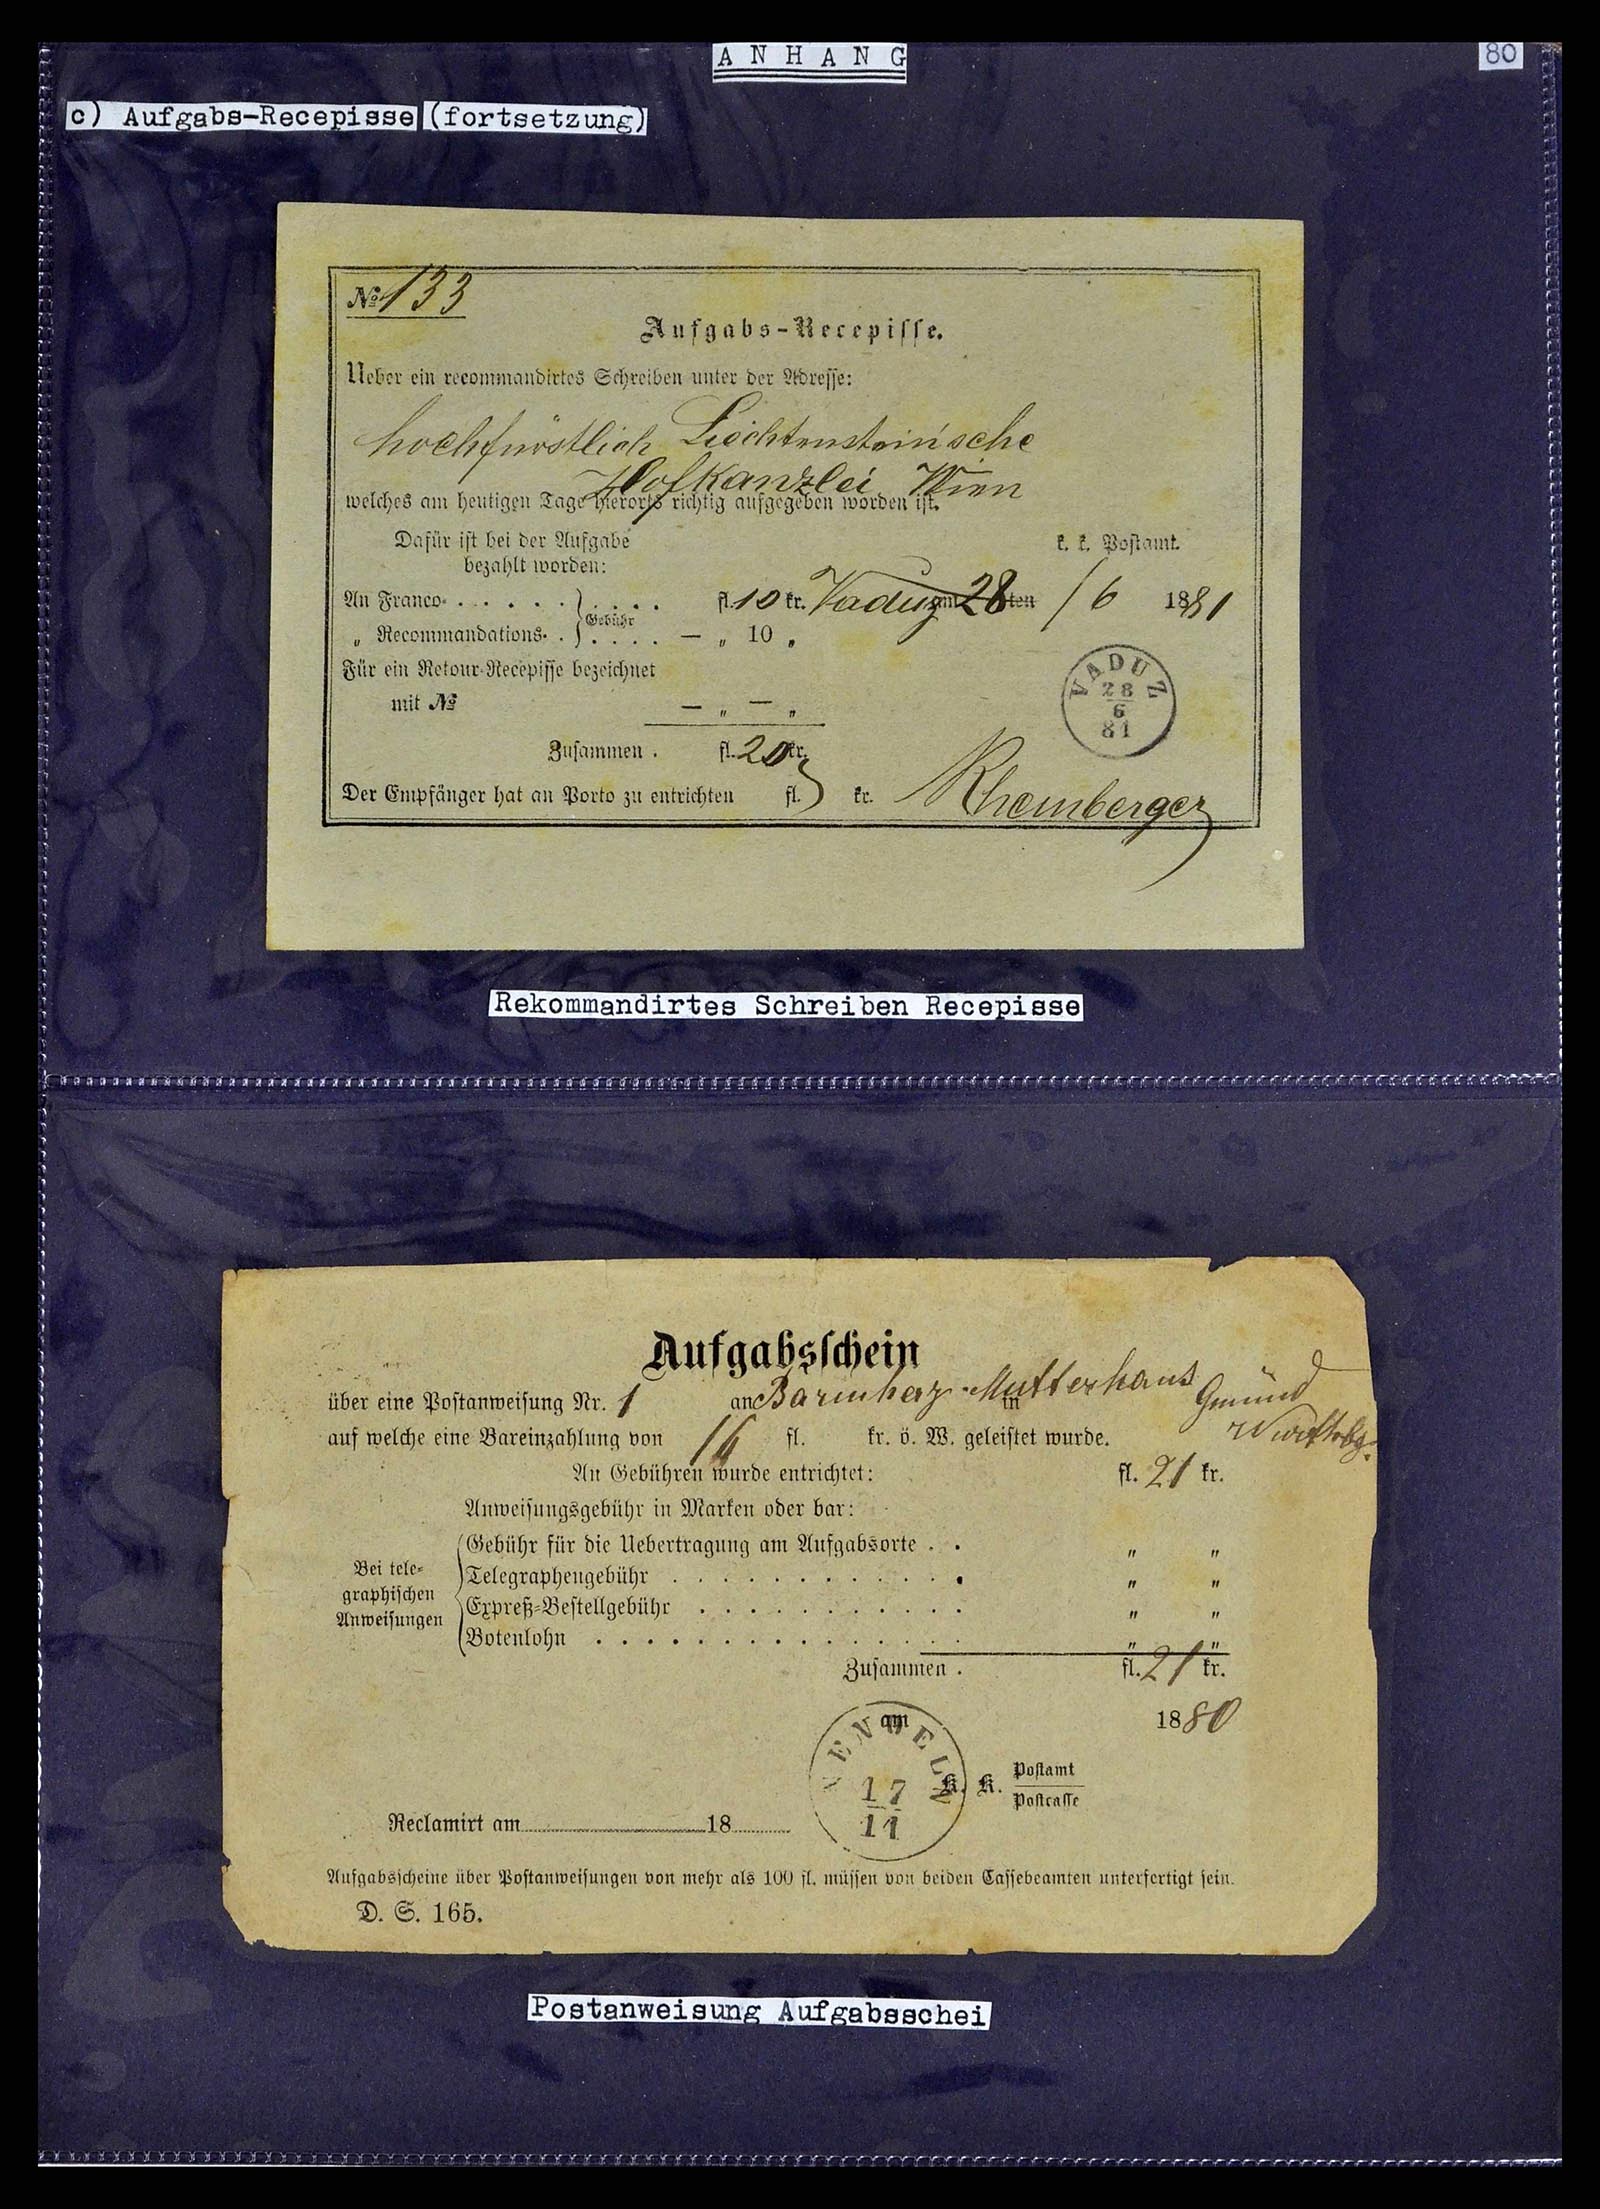 ANHANG
80
c) Aufgabs-Recepisse (fortsetzung)
№ 133
Aufgabs-Recepisse.
Ueber ein recommandirtes Schreiben unter der Adresse:
hochfürstlich Liechtenstein'sche
Hofkanzlei Wien
welches am heutigen Tage hierorts richtig aufgegeben worden ist.
Dafür ist bei der Aufgabe
bezahlt worden:
k. k. Postamt.
An Franco- . . . . . . . . . fl. 10 kr. Vaduz am 28ten / 6 1881
Gebühr
„ Recommandations- . . . . . — „ 10 „
Für ein Retour-Recepisse bezeichnet
mit № — „ — „
VADUZ
28
6
81
Zusammen . fl. 20 kr.
Der Empfänger hat an Porto zu entrichten fl. kr. Rheinberger
Rekommandirtes Schreiben Recepisse
Aufgabsschein
über eine Postanweisung Nr. 1 an Barmherz. Mutterhaus in Gmünd
auf welche eine Bareinzahlung von 16 fl. kr. ö. W. geleistet wurde.
An Gebühren wurde entrichtet: fl. 21 kr.
Anweisungsgebühr in Marken oder bar:
Bei tele-
graphischen
Anweisungen
Gebühr für die Uebertragung am Aufgabsorte . . „ „
Telegraphengebühr . . . . . . . . . . . . „ „
Expreß-Bestellgebühr . . . . . . . . . . . „ „
Botenlohn . . . . . . . . . . . . . . . „ „
Zusammen . fl. 21 kr.
am 1880
NENDELN
17
11
K. K. Postamt
Postcasse
Reclamirt am 18
Aufgabsscheine über Postanweisungen von mehr als 100 fl. müssen von beiden Cassebeamten unterfertigt sein.
D. S. 165.
Postanweisung Aufgabsschei